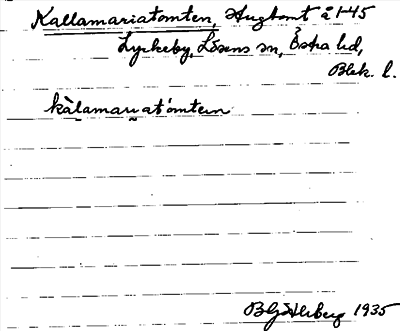 Kallamariatomten, Hugtomt å 1-45
Lyckeby, Lösens sn, Östra hd,
Blek. l.
kàlamariatómten
1935